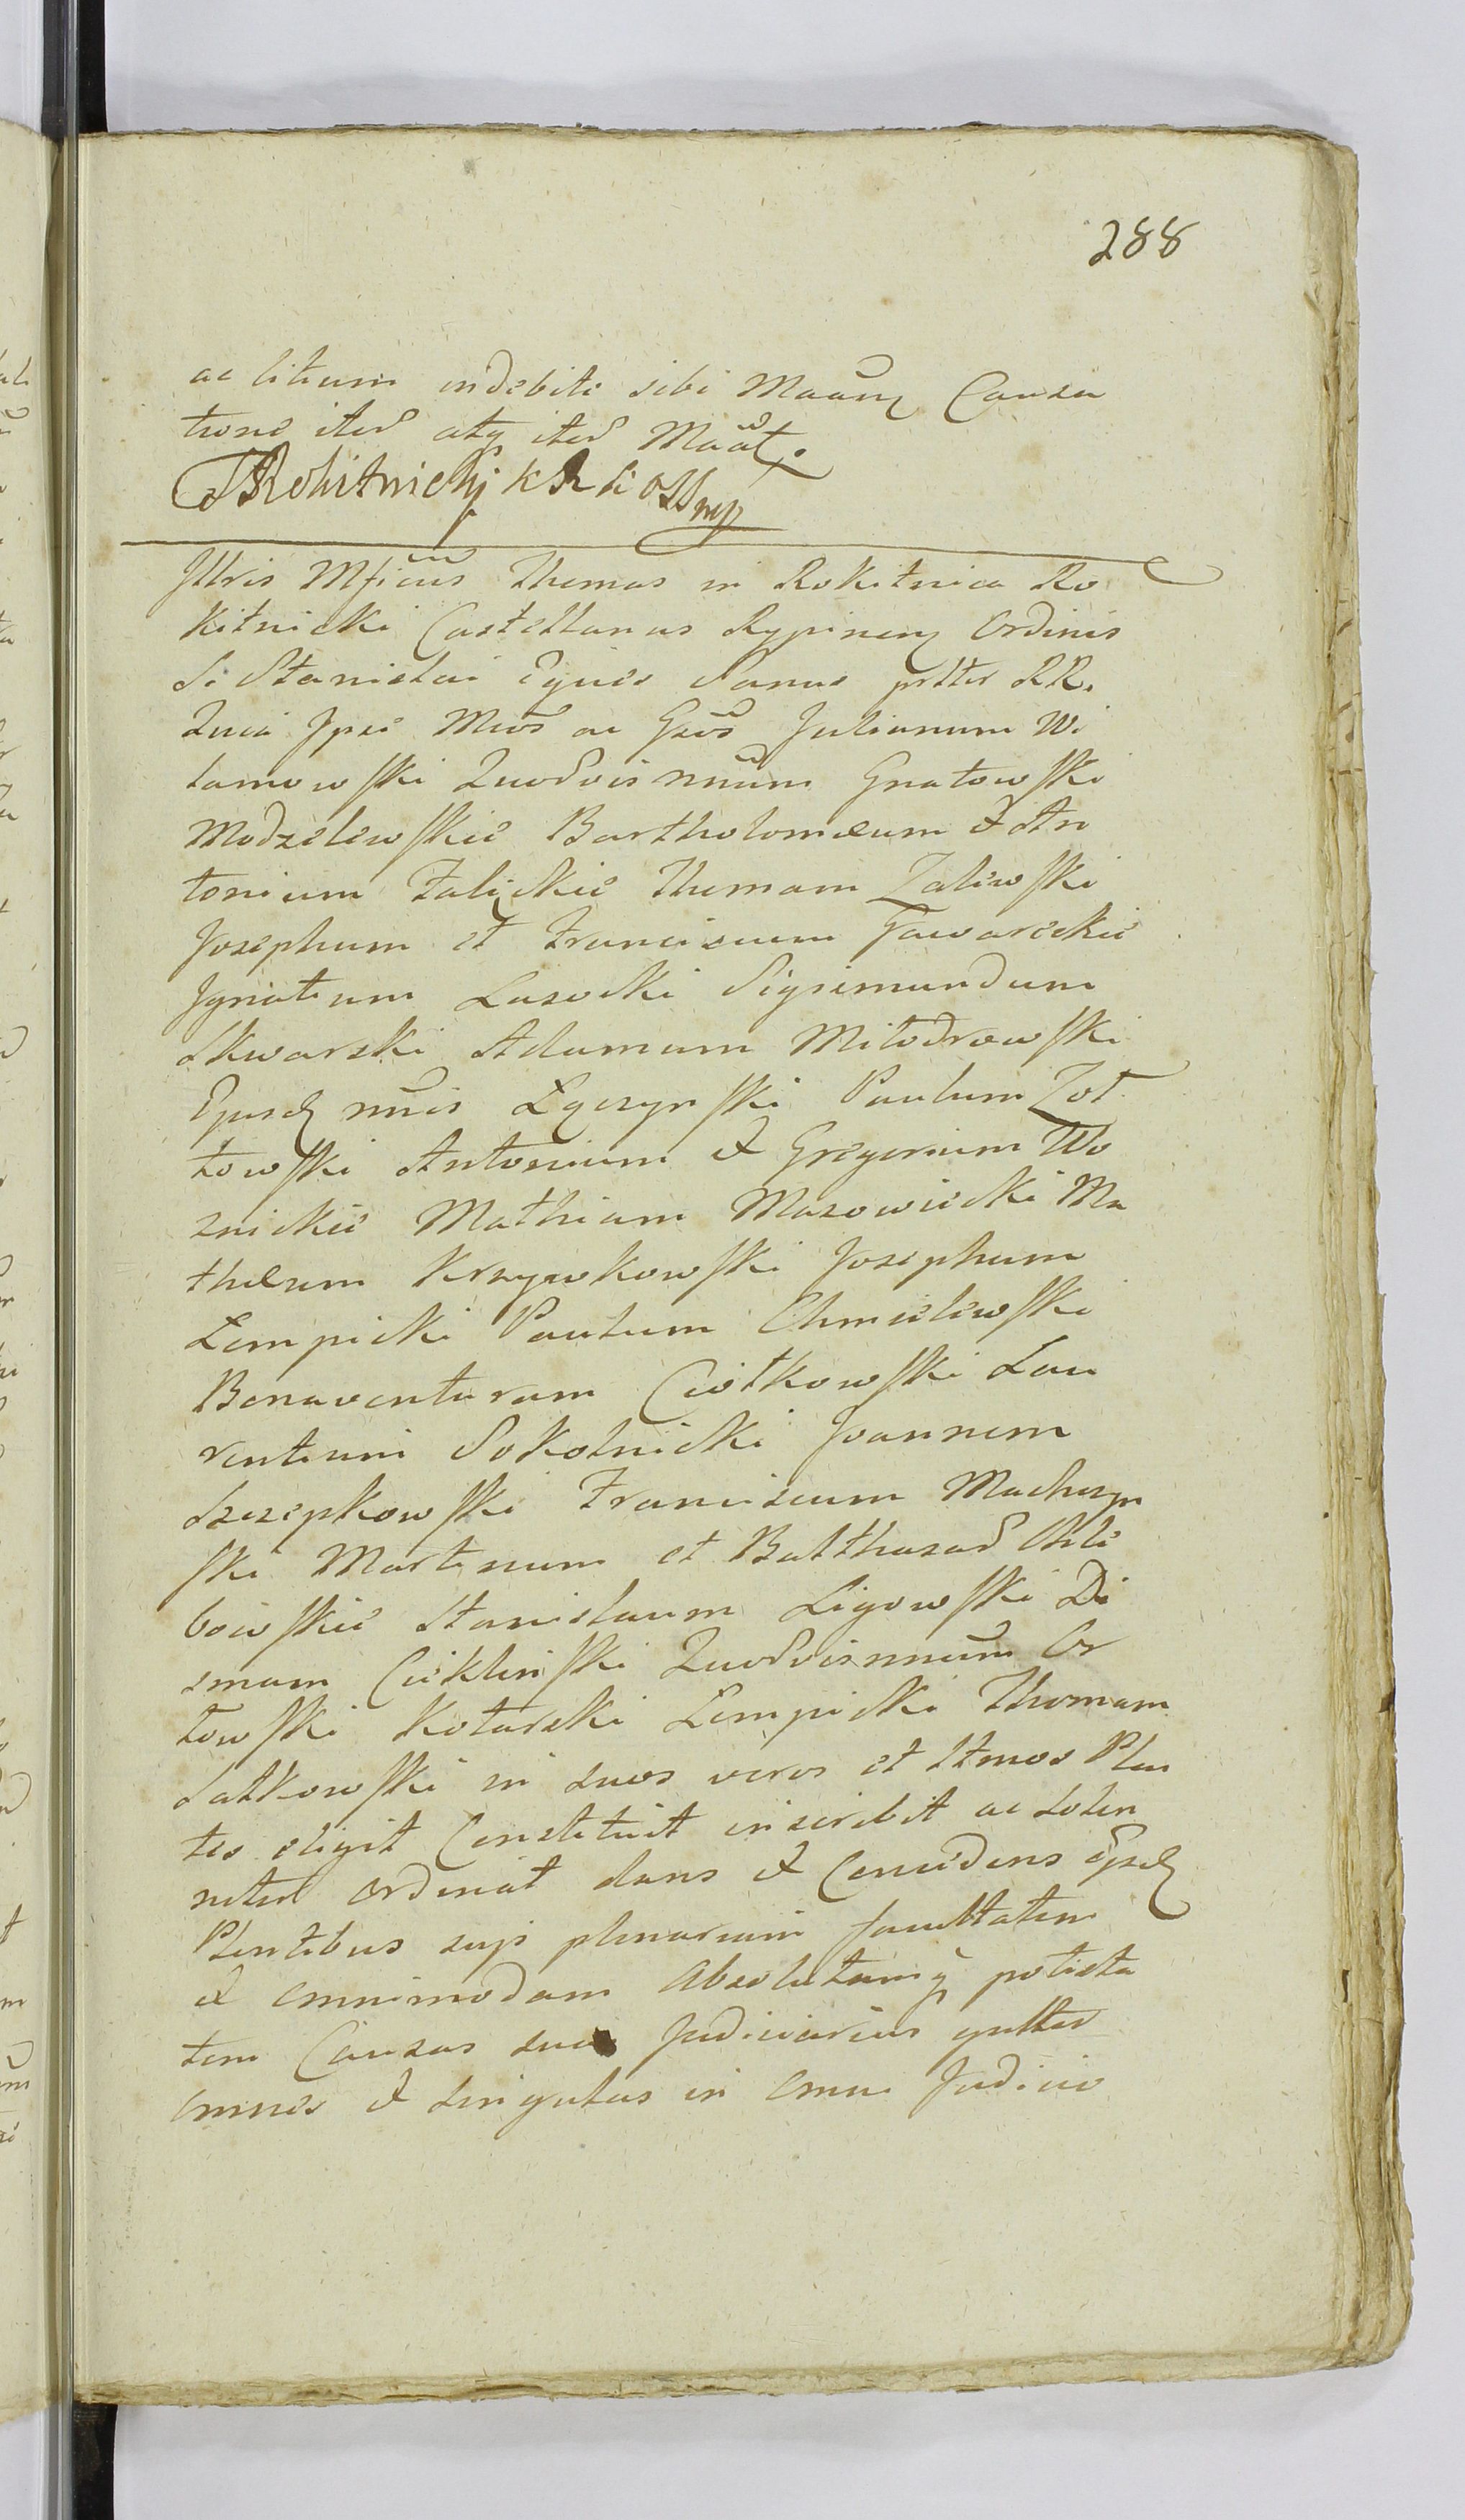 288
ac litium indebite sibi Maãnz Causa
tione iter atq iter Maãt.
TRokitnickj k R k o SS mp
Jllris Mficus Thomas in Rokitnica Ro
kitnicki Castellanus Rypinenz Ordinis
S. Stanislai Eques Sanus prttr RR.
Quia Jpse Mcos ac Gsos Julianum Wi
lamowski Quodvis nnum Gnatowski
Modzelewskie Bartholomæum & An
tonium Zalickie Thomam Zaliwski
Josephum et Franciscum Gawareckie
Jgnatium Lasocki Sigismundum
Skwarski Adamum Milodrowski
Ejusd nnis Łączynski Paulum Zoł
towski Antonium & Gregorium Wo
znickie Mathiam Mazowiecki Ma
thæum Krzywkowski Josephum
Lempicki Paulum Chmielewski
Bonaventuram Ciołkowski Lau
rentium Sokolnicki Joannem
Szczepkowski Franciscum Machczyn
ski Martinum et Balthasar Chle
bowskie Stanislaum Ligowski Di
smam Cieklinski Quodvis nnum Or
łowski Kotarski Lempicki Thomam
Satkowski in suos veros et ltmos Plen
tes eligit Constituit inscribit ac solen
niter ordinat dans & Concedens ijsd
Plentibus suis plenariam facultatem
& omnimodam absolutamq potesta
tem Causas suas Judiciarias gnlter
omnes & singulas in omni Judicio